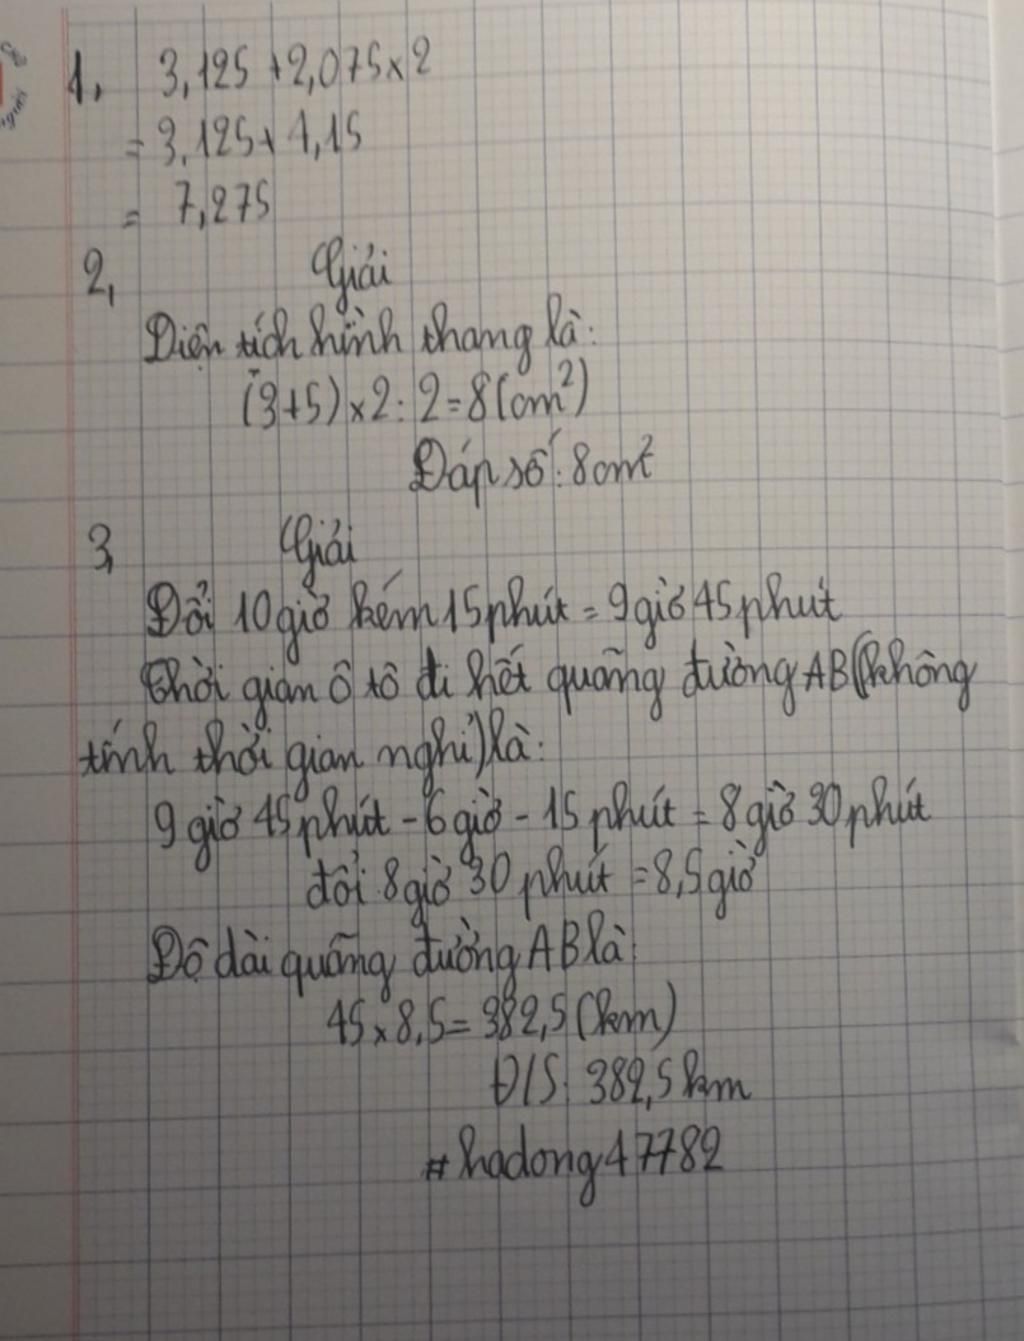 1, 3,125 + 2,075 x 2
= 3,125 + 4,15
= 7,275
2, Giải
Diện tích hình thang là:
(3+5) x 2 : 2 = 8 (cm²)
Đáp số: 8cm²
3, Giải
Đổi 10 giờ kém 15 phút = 9 giờ 45 phút
Thời gian ô tô đi hết quãng đường AB (không
tính thời gian nghỉ) là:
9 giờ 45 phút - 6 giờ - 15 phút = 8 giờ 30 phút
đổi 8 giờ 30 phút = 8,5 giờ
Độ dài quãng đường AB là:
45 x 8,5 = 382,5 (km)
Đ/S: 382,5 km
#hadong47782